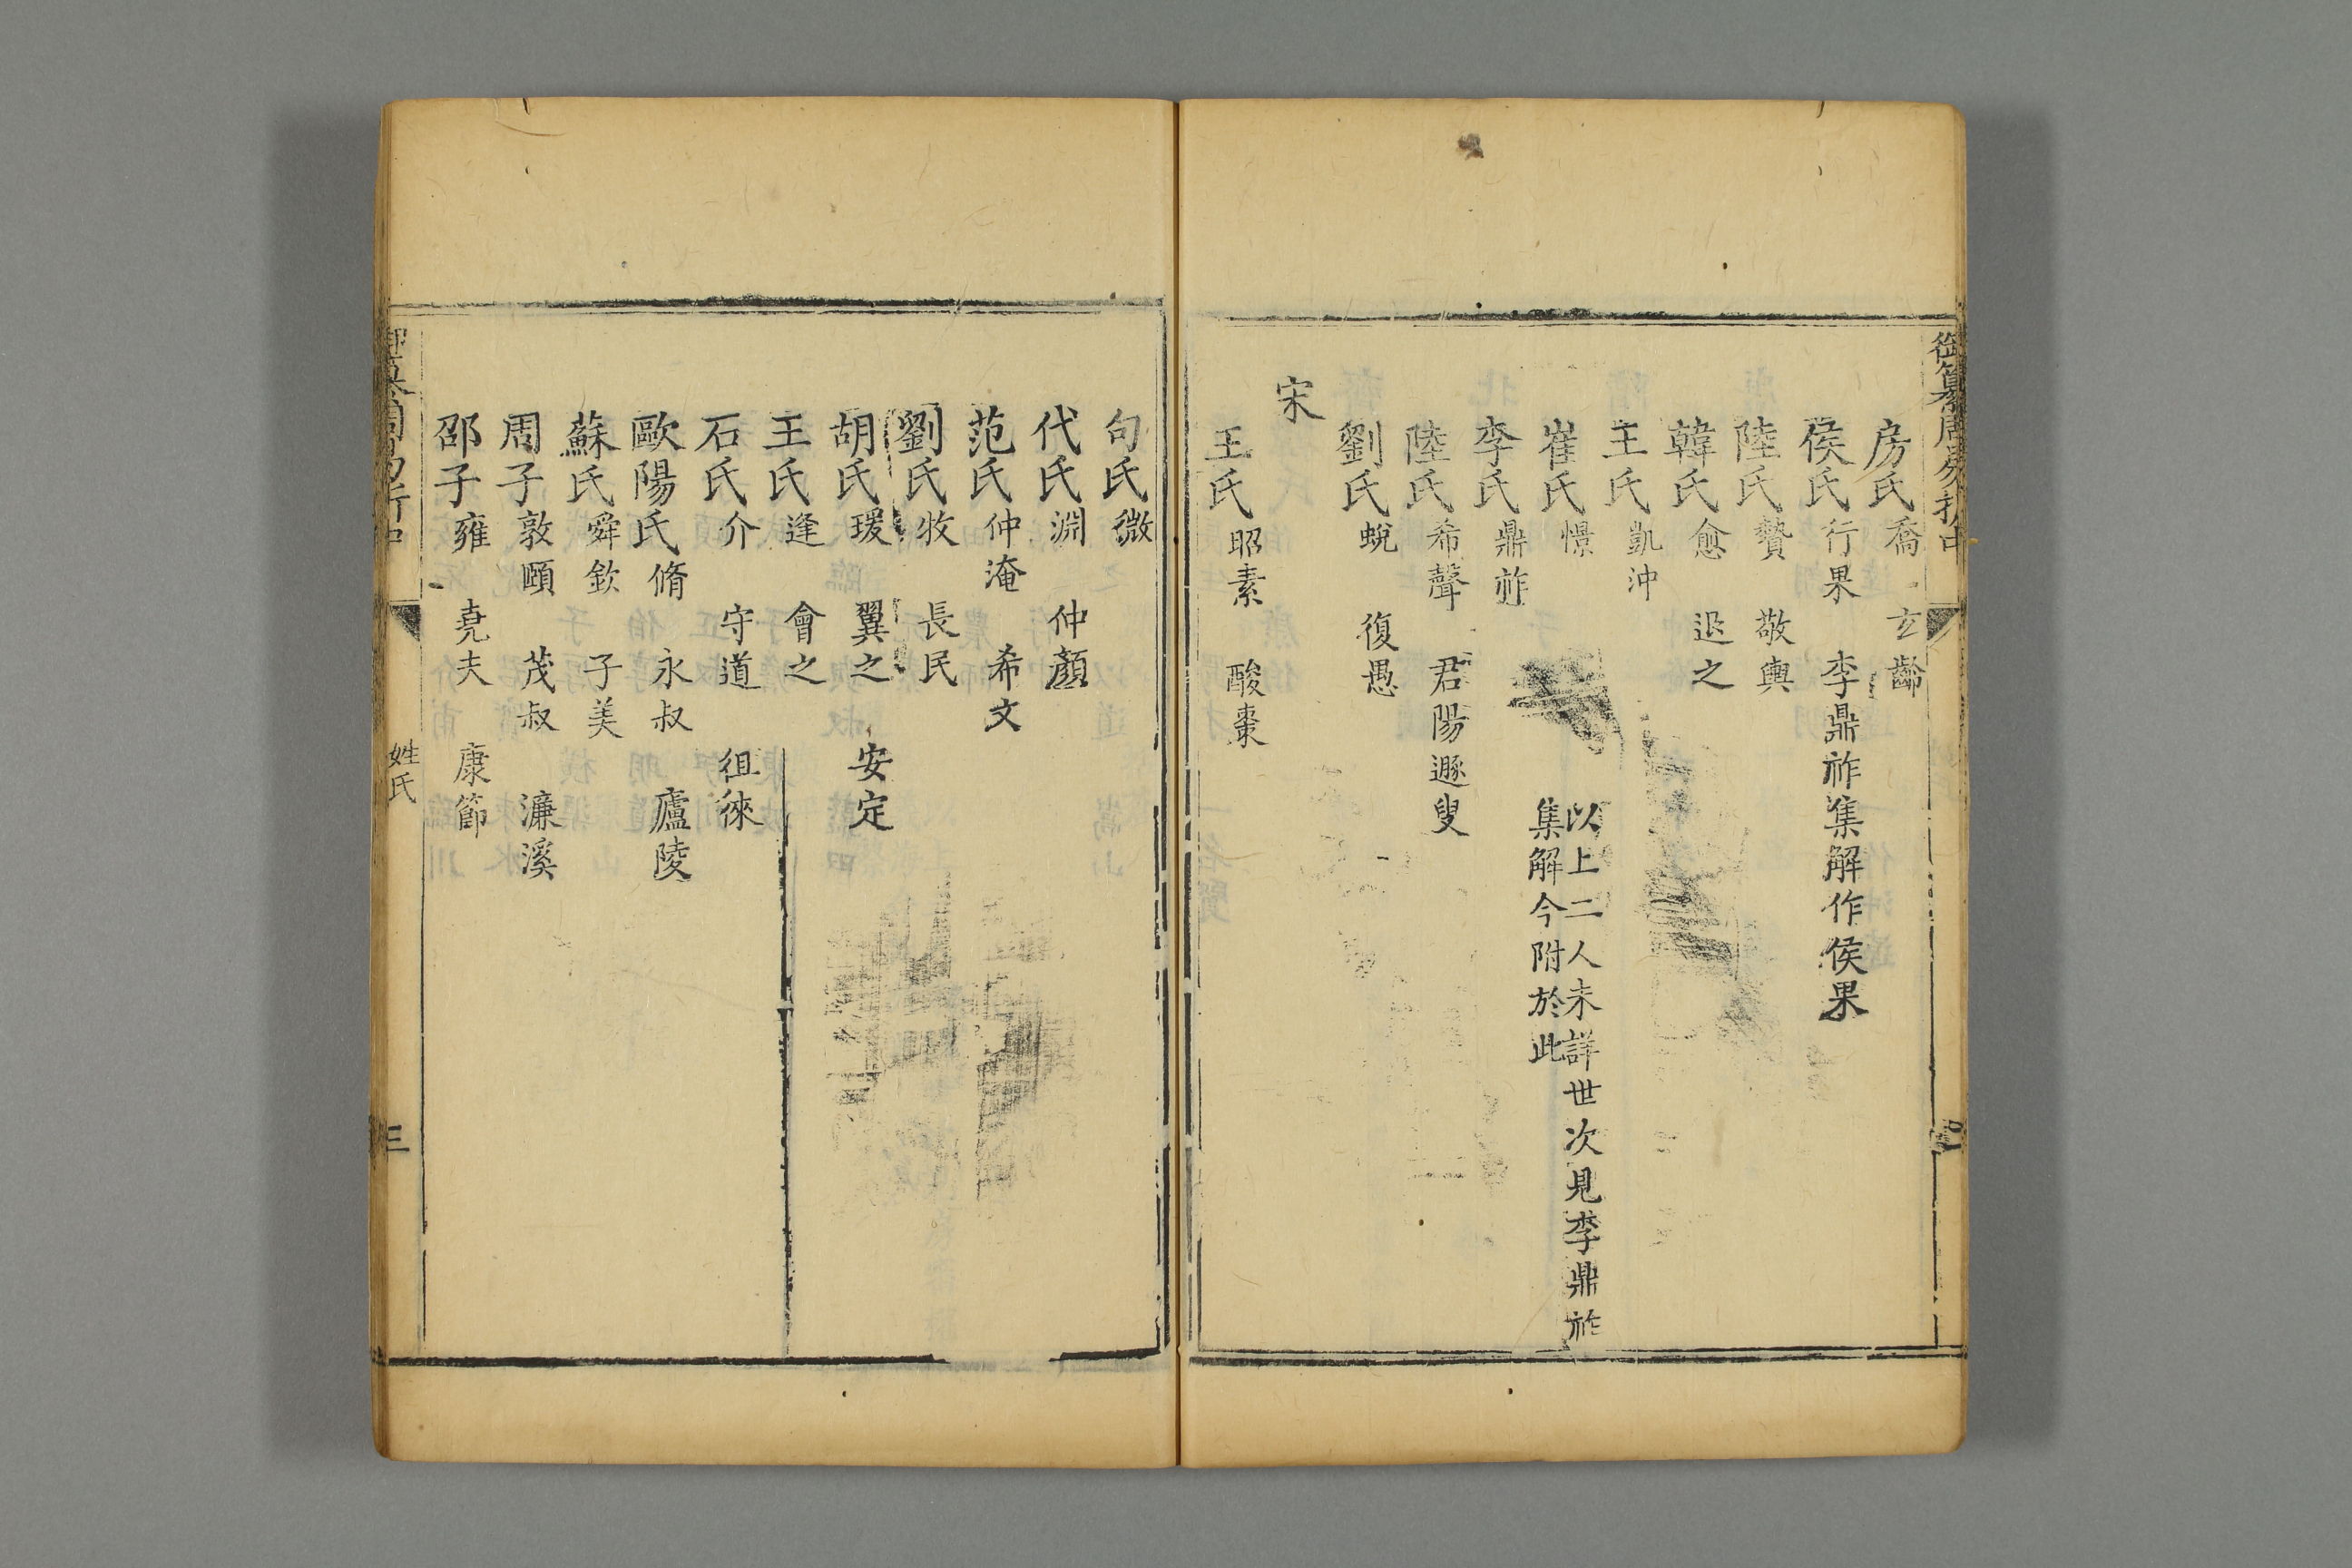 御纂周易折中
房氏喬 玄齡
侯氏行果 李鼎祚集解作侯果
陸氏贄 敬輿
韓氏愈 退之
王氏凱沖
崔氏憬 以上二人未詳世次見李鼎祚
集解今附於此
李氏鼎祚
陸氏希聲 君陽遯叟
劉氏蛻 復愚
宋
王氏昭素 酸棗
句氏微
代氏淵 仲顏
范氏仲淹 希文
劉氏牧 長民
胡氏瑗 翼之 安定
王氏逢 會之
石氏介 守道 徂徠
歐陽氏脩 永叔 廬陵
蘇氏舜欽 子美
周子敦頤 茂叔 濂溪
邵子雍 堯夫 康節
御纂周易折中 姓氏 三